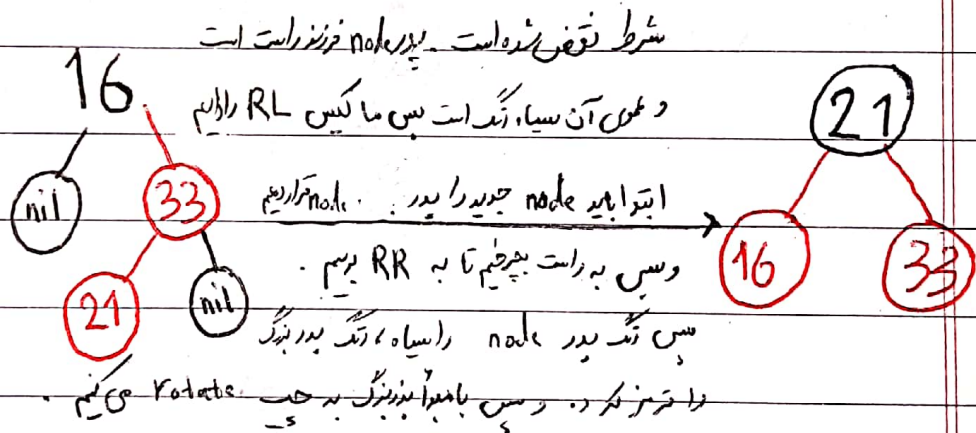 شرط نقض شده است. پدر node فرزند راست است
و عموی آن سیاه رنگ است پس ما کیس RL را داریم
ابتدا باید node جدید را پدر node قرار دهیم
و سپس به راست بچرخیم تا به RR برسیم.
سپس رنگ پدر node را سیاه، رنگ پدربزرگ
را قرمز کرده و سپس با مبدأ پدربزرگ به چپ rotate می کنیم.
16
nil
33
21
nil
21
16
33